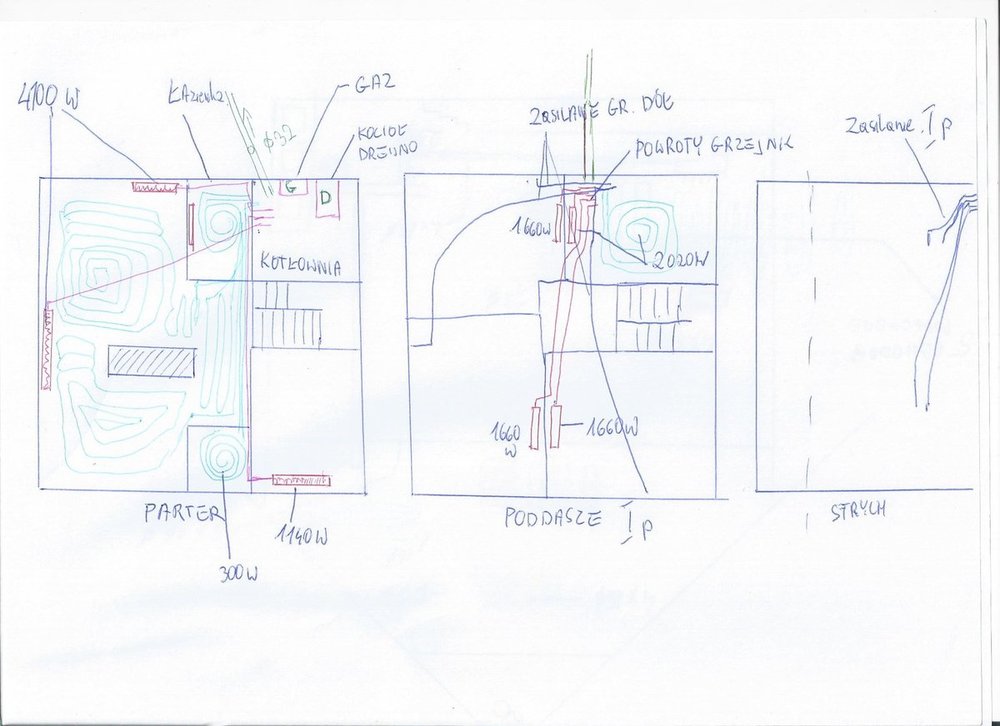 4100 W
Łazienka
GAZ
KOCIOŁ
DREWNO
φ32
G
D
KOTŁOWNIA
PARTER
1140W
300W
ZASILANIE GR. DÓŁ
POWROTY GRZEJNIK
1660W
2020W
1660
W
1660W
PODDASZE I p
Zasilanie I p
STRYCH